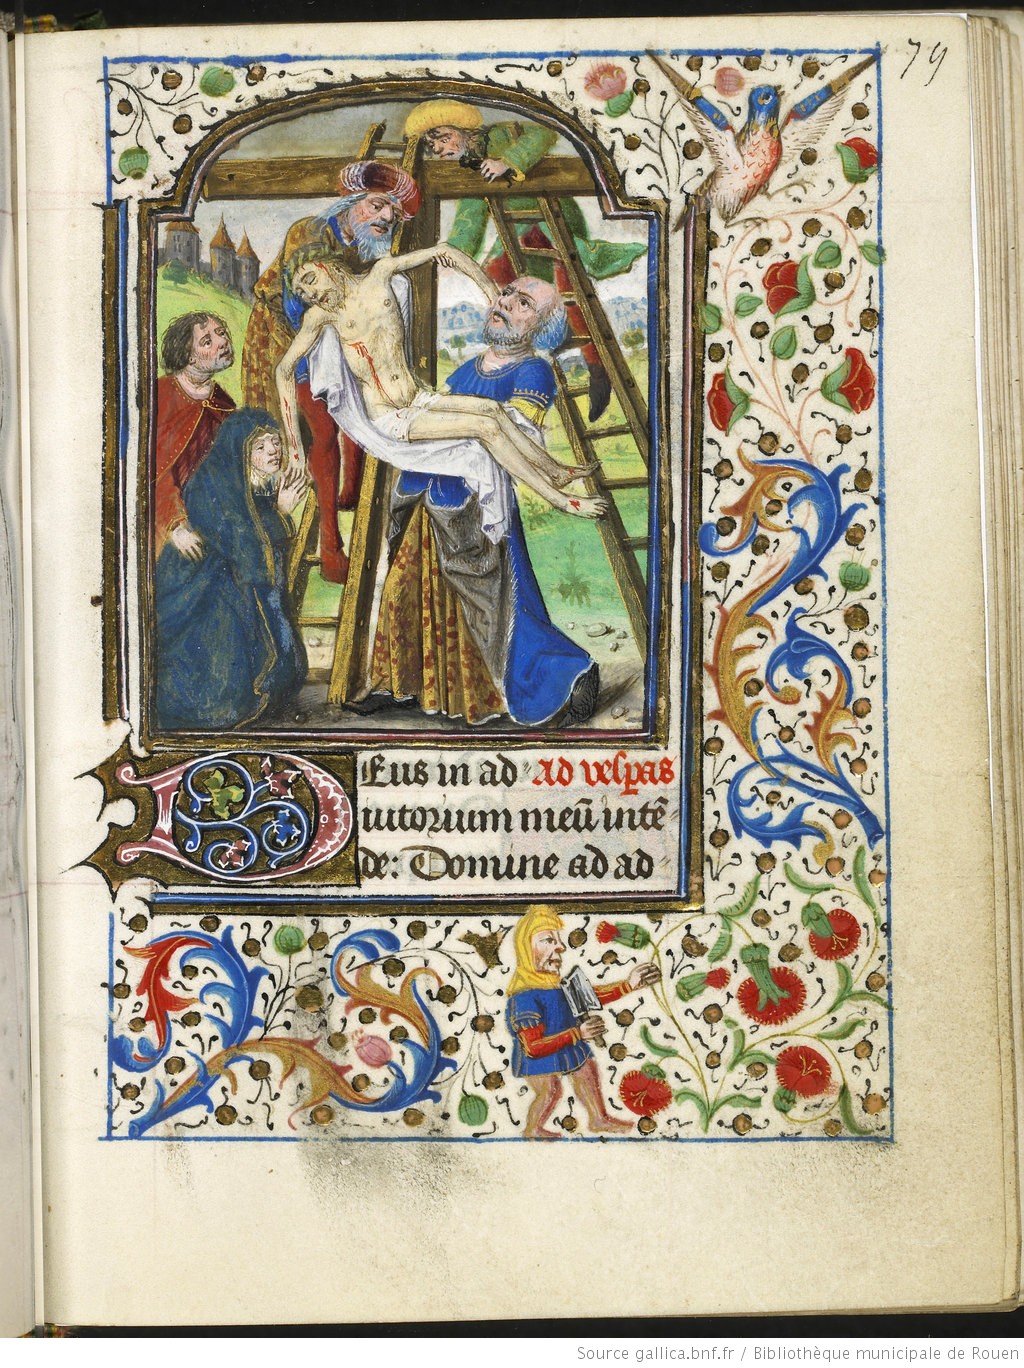 79
Deus in ad Ad vesp̄as
iutorium meū intē
de: Domine ad ad
Source gallica.bnf.fr / Bibliothèque municipale de Rouen